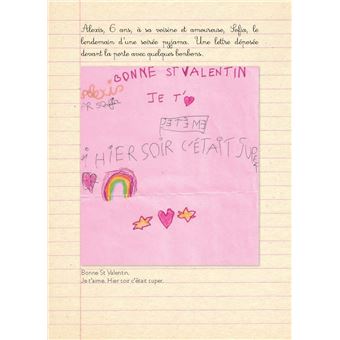 Alexis, 6 ans, à sa voisine et amoureuse, Sofia, le
lendemain d'une soirée pyjama. Une lettre déposée
devant la porte avec quelques bonbons.
BONNE ST VALENTIN
alexis
JE T'
HIER SOIR C'ÉTAIT SUPER
Bonne St Valentin.
Je t'aime. Hier soir c'était super.